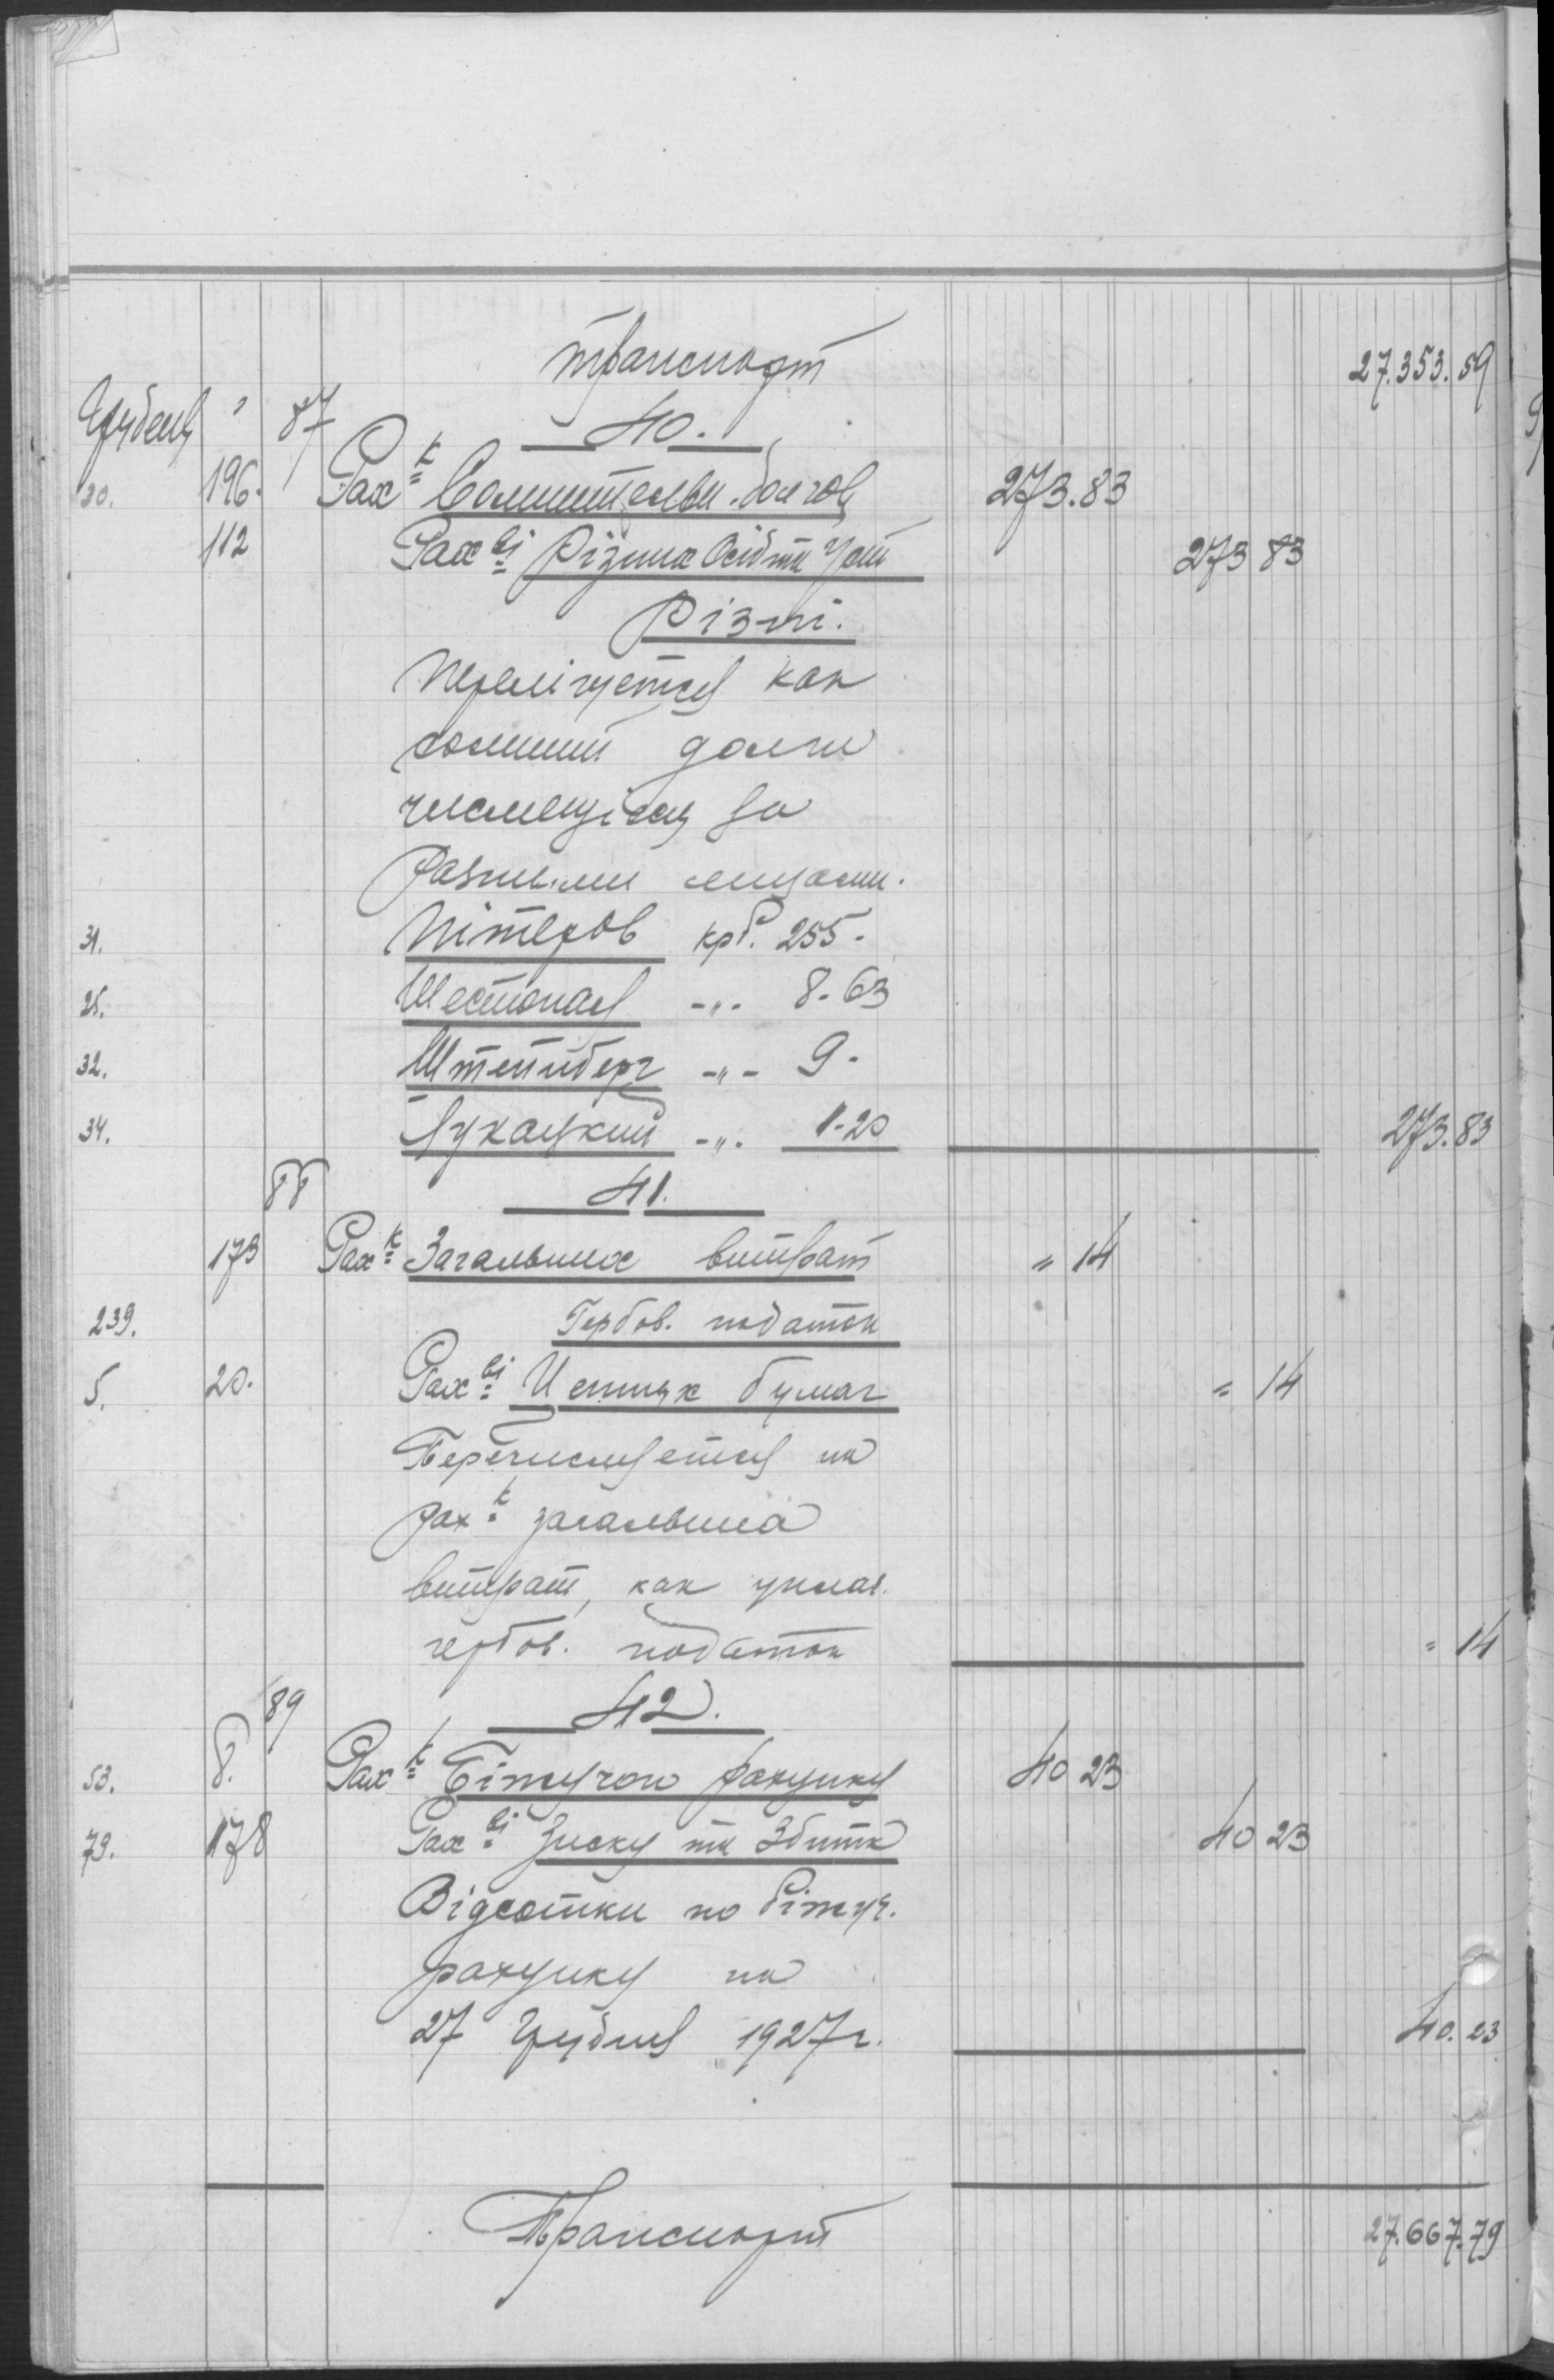 транспорт 27.353.59
Грудень " 87 40.
20. 196. Рах к Сомнительн. долгов 273.83
112 Рах ві Різних Осіб та Уст 273 83
Різні.
как
сомнит долги
за
разными лицами.
31. Пітеров крб. 255-
25. Шестопал -"- 8-63
32. Штейнберг -"- 9-
34. Лукацкий -"- 1-20 273.83
88 41.
173 Рах к Загальних витрат " 14
239. Гербов. податок
5. 20. Рах ві Ценних бумаг " 14
Перечисляется на
рах к загальних
витрат, как уплач.
гербов. податок " 14
89 42.
53. 8. Рах к Біжучого рахунку 40 23
79. 178 Рах ві Зиску та Збитк 40 23
Відсотки по біжуч.
рахунку на
27 Грудня 1927 г. 40.23
Транспорт 27.667.79